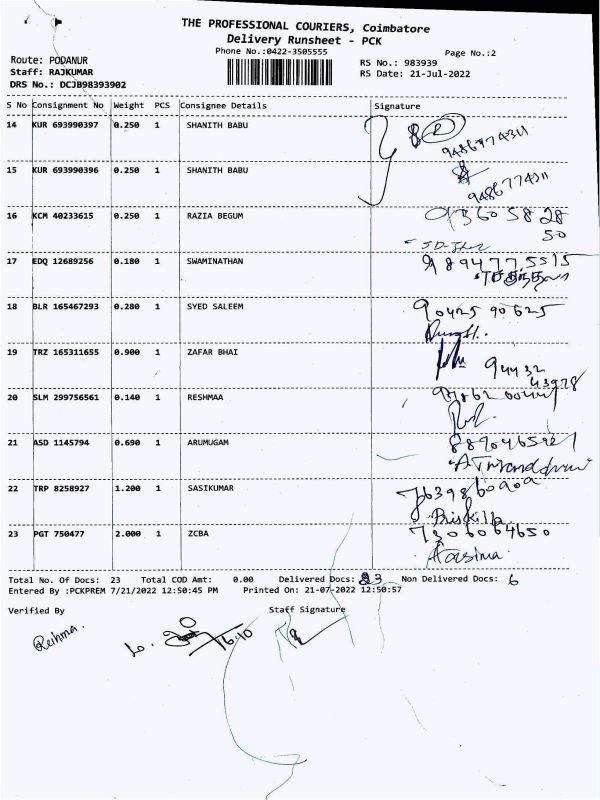 THE PROFESSIONAL COURIERS, Coimbatore
Delivery Runsheet - PCK
Phone No.:0422-3505555
Page No.:2
Route: PODANUR
RS No.: 983939
Staff: RAJKUMAR
RS Date: 21-Jul-2022
DRS No.: DCJB98393902
S No Consignment No Weight PCS Consignee Details Signature
14 KUR 693990397 0.250 1 SHANITH BABU
9486774311
15 KUR 693990396 0.250 1 SHANITH BABU
9486774311
16 KCM 40233615 0.250 1 RAZIA BEGUM 93605 828
50
17 EDQ 12689256 0.180 1 SWAMINATHAN 9894775515
18 BLR 165467293 0.280 1 SYED SALEEM 90425 90625
19 TRZ 165311655 0.900 1 ZAFAR BHAI
94432
43978
20 SLM 299756561 0.140 1 RESHMAA
21 ASD 1145794 0.690 1 ARUMUGAM
22 TRP 8258927 1.200 1 SASIKUMAR
Priskilla
23 PGT 750477 2.000 1 ZCBA 7306064650
Total No. Of Docs: 23 Total COD Amt: 0.00 Delivered Docs: 23 Non Delivered Docs: 6
Entered By :PCKPREM 7/21/2022 12:50:45 PM Printed On: 21-07-2022 12:50:57
Verified By Staff Signature